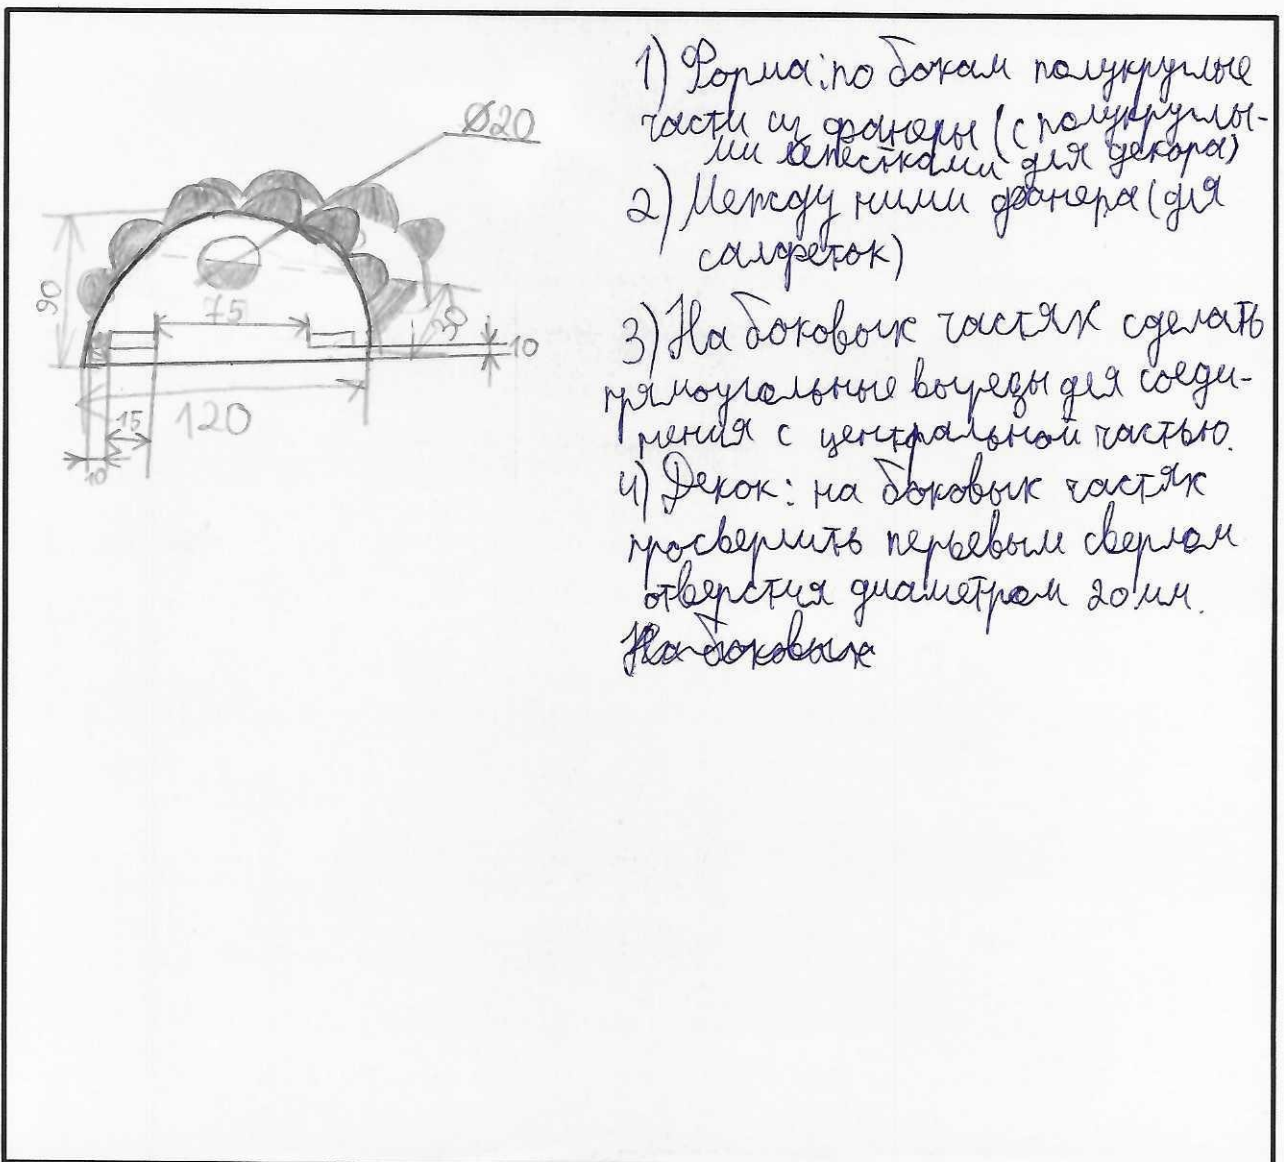 Ø20
90
75
30
10
120
15
10
1) Форма: по бокам полукруглые
части из фанеры (с полукруглы-
ми лепестками для декора)
2) Между ними фанера (для
салфеток)
3) На боковых частях сделать
прямоугольные вырезы для соеди-
нения с центральной частью.
4) Декок: на боковых частях
просверлить перьевым сверлом
отверстия диаметром 20 мм.
На боковых